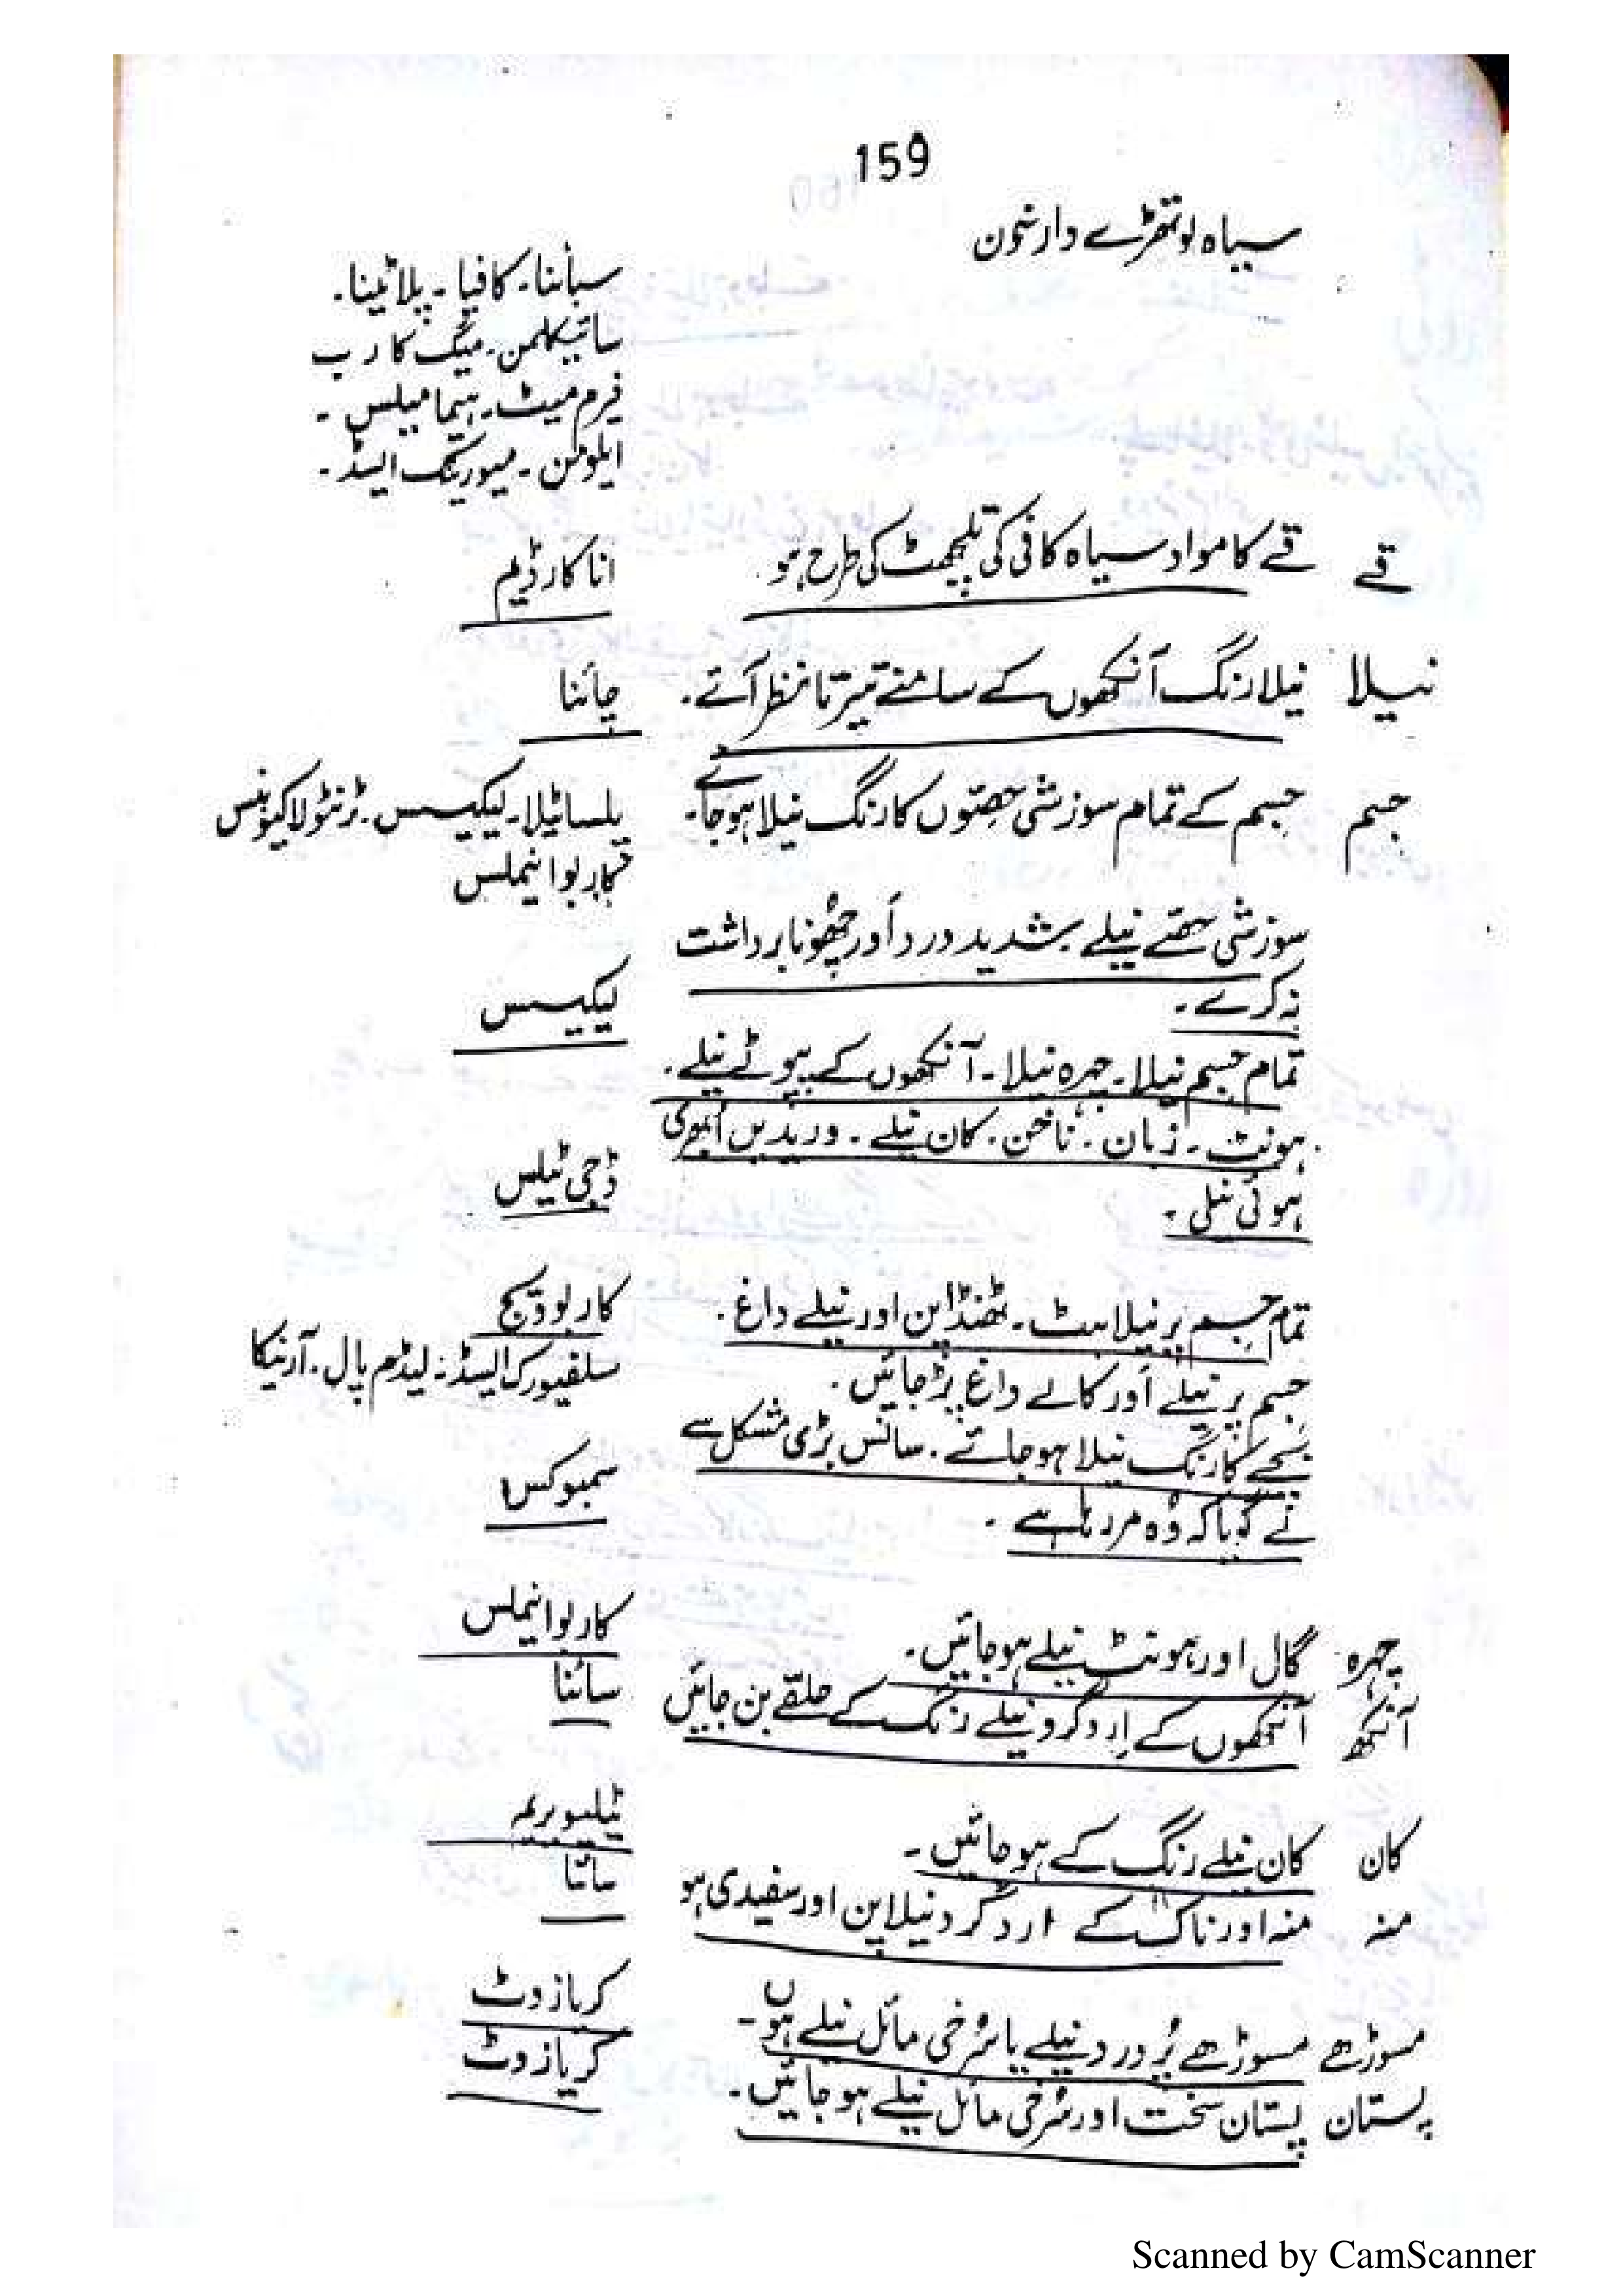 159
سیاہ لوتھڑے دار خون
سبائنا۔ کافیا۔ پلاٹینا۔
سائیکلمن۔ میگ کارب
فرم میٹ۔ ہیمامیلس۔
ایلومن۔ میورٹیک ایسڈ۔
قے قے کا مواد سیاہ کافی کی تلچھٹ کی طرح ہو۔ اناکارڈیم
نیلا نیلا رنگ آنکھوں کے سامنے تیرتا نظر آئے۔ چائنا
جسم جسم کے تمام سوزشی حصّوں کا رنگ نیلا ہو جائے۔ پلساٹیلا۔ لیکیسس۔ ٹرنٹولا کیوبنس
کاربوا نیملس
سوزشی حصّے نیلے شدید درد اَور چھُونا برداشت
نہ کرے۔ لیکیسس
تمام جسم نیلا۔ چہرہ نیلا۔ آنکھوں کے پپوٹے نیلے۔
ہونٹ۔ زبان۔ ناخن۔ کان نیلے۔ وریدیں اُبھری
ہوئی نیلی۔ ڈجی ٹیلس
تمام جسم پر نیلاہٹ۔ ٹھنڈا پن اور نیلے داغ۔ کاربوویج
جسم پر نیلے اَور کالے داغ پڑ جائیں۔ سلفیورک ایسڈ۔ لیڈم پال۔ آرنیکا
بچے کا رنگ نیلا ہو جائے۔ سانس بڑی مشکل سے
لے گویا کہ وُہ مر رہا ہے۔ سمبوکس
چہرہ گال اور ہونٹ نیلے ہو جائیں۔ کاربوا نیملس
آنکھ آنکھوں کے اِردگرد نیلے رنگ کے حلقے بن جائیں سائنا
کان کان نیلے رنگ کے ہو جائیں۔ ٹیلیوریم
منہ منہ اور ناک کے اردگرد نیلا پن اور سفیدی ہو سائنا
مسوڑھے مسوڑھے پُر درد نیلے یا سُرخی مائل نیلے ہوں۔ کریازوٹ
پستان پستان سخت اور سُرخی مائل نیلے ہو جائیں۔ کریازوٹ
Scanned by CamScanner